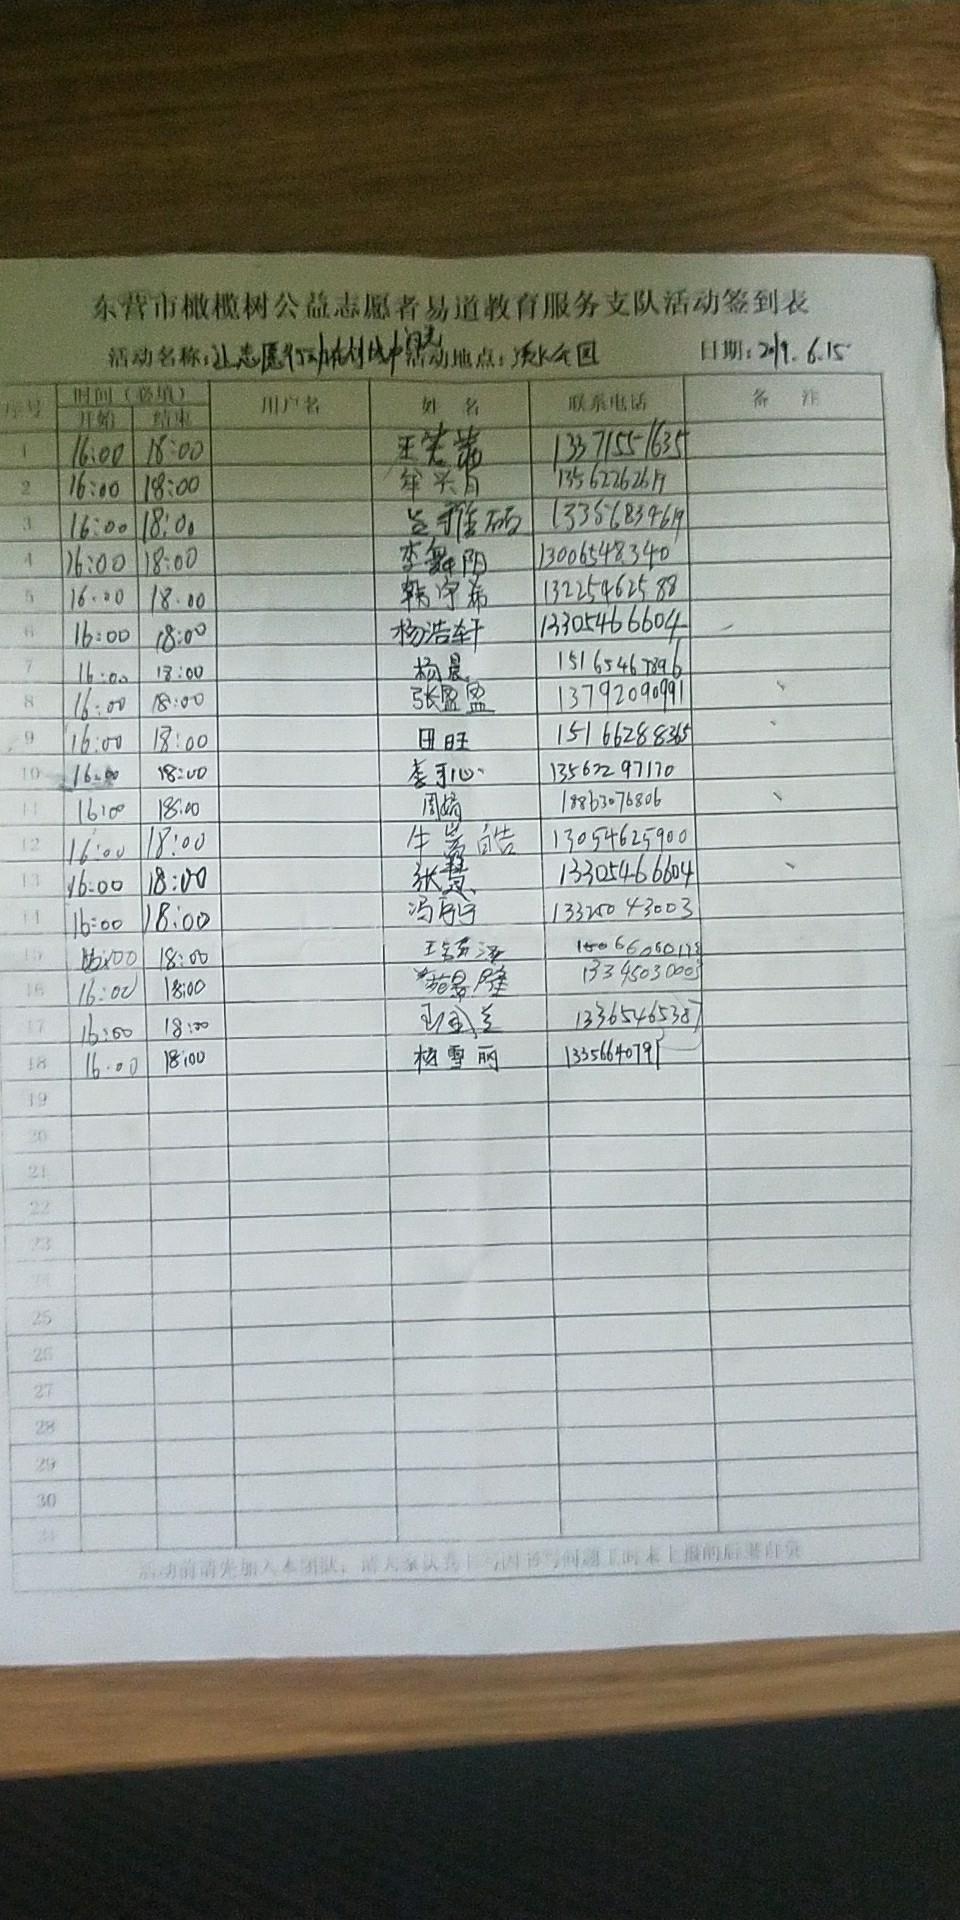 东营市橄榄树公益志愿者易道教育服务支队活动签到表
活动名称:让志愿 活动地点: 公园 日期:2019.6.15
序号 时间(必填) 用户名 姓名 联系电话 备注
开始 结束
1 16:00 18:00 13371551635
2 16:00 18:00 13562262619
3 16:00 18:00 13356834619
4 16:00 18:00 李舞阳 13006548340
5 16:00 18:00 韩宇希 13225462588
6 16:00 18:00 杨浩轩 13305466604
7 16:00 18:00 杨晨 15165467896
8 16:00 18:00 张盈盈 13792090991
9 16:00 18:00 田旺 15166288365
10 16:00 18:00 13562297170
11 16:00 18:00 周婧 18863076806
12 16:00 18:00 牛嵩皓 13054625900
13 16:00 18:00 张慧 13305466604
14 16:00 18:00 13325043003
15 16:00 18:00
16 16:00 18:00 13345030003
17 16:00 18:00 13365465387
18 16:00 18:00 杨雪丽 13356640791
19
20
21
22
23
24
25
26
27
28
29
30
31
活动前请先加入本团队,